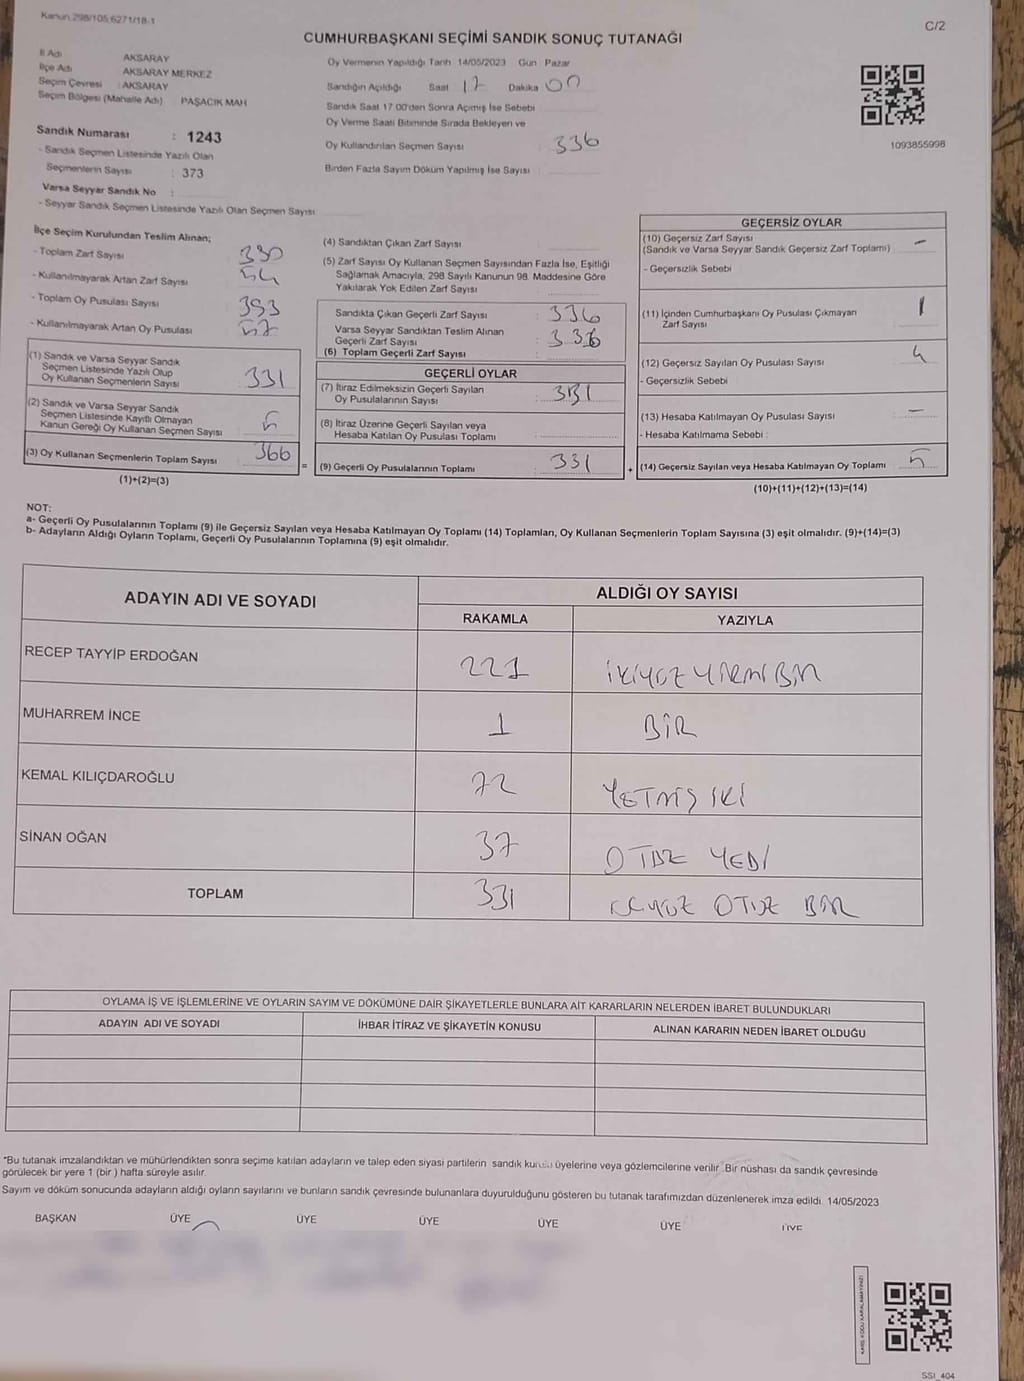 Kanun:298/105;6271/18-1
C/2
CUMHURBAŞKANI SEÇİMİ SANDIK SONUÇ TUTANAĞI
İl Adı AKSARAY
İlçe Adı AKSARAY MERKEZ
Seçim Çevresi : AKSARAY
Seçim Bölgesi (Mahalle Adı) PAŞACIK MAH
Sandık Numarası : 1243
- Sandık Seçmen Listesinde Yazılı Olan
Seçmenlerin Sayısı : 373
Varsa Seyyar Sandık No :
- Seyyar Sandık Seçmen Listesinde Yazılı Olan Seçmen Sayısı
Oy Vermenin Yapıldığı Tarih 14/05/2023 Gün Pazar
Sandığın Açıldığı Saat 17 Dakika 00
Sandık Saat 17:00'den Sonra Açılmış İse Sebebi
Oy Verme Saati Bitiminde Sırada Bekleyen ve
Oy Kullandırılan Seçmen Sayısı 336
Birden Fazla Sayım Döküm Yapılmış İse Sayısı :
1093855998
İlçe Seçim Kurulundan Teslim Alınan;
- Toplam Zarf Sayısı 390
- Kullanılmayarak Artan Zarf Sayısı 54
- Toplam Oy Pusulası Sayısı 393
- Kullanılmayarak Artan Oy Pusulası 57
(1) Sandık ve Varsa Seyyar Sandık
Seçmen Listesinde Yazılı Olup
Oy Kullanan Seçmenlerin Sayısı 331
(2) Sandık ve Varsa Seyyar Sandık
Seçmen Listesinde Kayıtlı Olmayan
Kanun Gereği Oy Kullanan Seçmen Sayısı 5
(3) Oy Kullanan Seçmenlerin Toplam Sayısı 366
(1)+(2)=(3)
(4) Sandıktan Çıkan Zarf Sayısı
(5) Zarf Sayısı Oy Kullanan Seçmen Sayısından Fazla İse, Eşitliği
Sağlamak Amacıyla, 298 Sayılı Kanunun 98. Maddesine Göre
Yakılarak Yok Edilen Zarf Sayısı
Sandıkta Çıkan Geçerli Zarf Sayısı : 336
Varsa Seyyar Sandıktan Teslim Alınan
Geçerli Zarf Sayısı : 336
(6) Toplam Geçerli Zarf Sayısı :
GEÇERLİ OYLAR
(7) İtiraz Edilmeksizin Geçerli Sayılan
Oy Pusulalarının Sayısı : 331
(8) İtiraz Üzerine Geçerli Sayılan veya
Hesaba Katılan Oy Pusulası Toplamı
= (9) Geçerli Oy Pusulalarının Toplamı : 331
GEÇERSİZ OYLAR
(10) Geçersiz Zarf Sayısı
(Sandık ve Varsa Seyyar Sandık Geçersiz Zarf Toplamı) -
- Geçersizlik Sebebi
(11) İçinden Cumhurbaşkanı Oy Pusulası Çıkmayan
Zarf Sayısı 1
(12) Geçersiz Sayılan Oy Pusulası Sayısı 4
- Geçersizlik Sebebi
(13) Hesaba Katılmayan Oy Pusulası Sayısı -
- Hesaba Katılmama Sebebi :
+ (14) Geçersiz Sayılan veya Hesaba Katılmayan Oy Toplamı 5
(10)+(11)+(12)+(13)=(14)
NOT:
a- Geçerli Oy Pusulalarının Toplamı (9) ile Geçersiz Sayılan veya Hesaba Katılmayan Oy Toplamı (14) Toplamları, Oy Kullanan Seçmenlerin Toplam Sayısına (3) eşit olmalıdır. (9)+(14)=(3)
b- Adayların Aldığı Oyların Toplamı, Geçerli Oy Pusulalarının Toplamına (9) eşit olmalıdır.
ADAYIN ADI VE SOYADI ALDIĞI OY SAYISI
RAKAMLA YAZIYLA
RECEP TAYYİP ERDOĞAN 221 İKİYÜZ YİRMİ BİR
MUHARREM İNCE 1 BİR
KEMAL KILIÇDAROĞLU 72 YETMİŞ İKİ
SİNAN OĞAN 37 OTUZ YEDİ
TOPLAM 331 ÜÇYÜZ OTUZ BİR
OYLAMA İŞ VE İŞLEMLERİNE VE OYLARIN SAYIM VE DÖKÜMÜNE DAİR ŞİKAYETLERLE BUNLARA AİT KARARLARIN NELERDEN İBARET BULUNDUKLARI
ADAYIN ADI VE SOYADI İHBAR İTİRAZ VE ŞİKAYETİN KONUSU ALINAN KARARIN NEDEN İBARET OLDUĞU
*Bu tutanak imzalandıktan ve mühürlendikten sonra seçime katılan adayların ve talep eden siyasi partilerin sandık kurulu üyelerine veya gözlemcilerine verilir. Bir nüshası da sandık çevresinde
görülecek bir yere 1 (bir ) hafta süreyle asılır.
Sayım ve döküm sonucunda adayların aldığı oyların sayılarını ve bunların sandık çevresinde bulunanlara duyurulduğunu gösteren bu tutanak tarafımızdan düzenlenerek imza edildi. 14/05/2023
BAŞKAN ÜYE ÜYE ÜYE ÜYE ÜYE ÜYE
KARE KODU KARALAMAYINIZ!
SSI_404